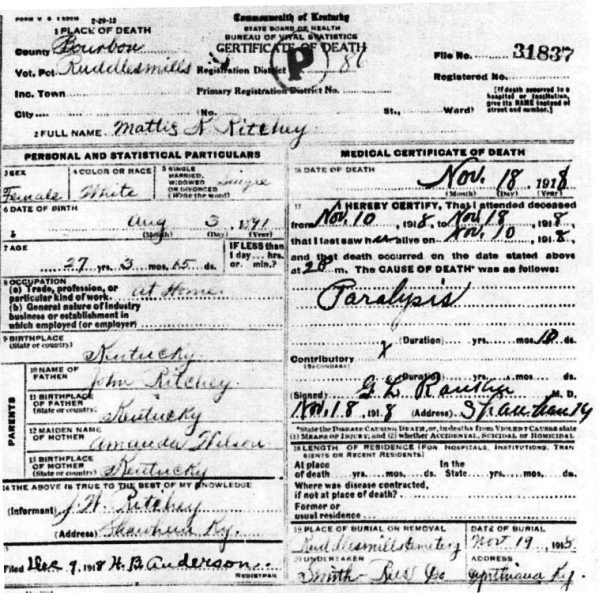 FORM V. S. 2-29-12
1 PLACE OF DEATH
County Bourbon
Vot. Pct Ruddlesmills
Inc. Town
City
Commonwealth of Kentucky
STATE BOARD OF HEALTH
BUREAU OF VITAL STATISTICS
CERTIFICATE OF DEATH
Registration District (P) 86
Primary Registration District No.
(No. St., Ward)
File No. 31837
Registered No.
[If death occurred in a hospital or institution, give its NAME instead of street and number.]
2 FULL NAME Mattie K Ritchey
PERSONAL AND STATISTICAL PARTICULARS
3 SEX Female
4 COLOR OR RACE White
5 SINGLE MARRIED, WIDOWED OR DIVORCED (Write the word) Single
6 DATE OF BIRTH
Aug 3, 1891
(Month) (Day) (Year)
7 AGE
27 yrs. 3 mos. 15 ds.
IF LESS than 1 day hrs. or min.?
8 OCCUPATION
(a) Trade, profession, or particular kind of work. at Home
(b) General nature of industry business or establishment in which employed (or employer)
9 BIRTHPLACE
(State or country) Kentucky
PARENTS
10 NAME OF FATHER John Ritchey
11 BIRTHPLACE OF FATHER (State or country) Kentucky
12 MAIDEN NAME OF MOTHER Amanda
13 BIRTHPLACE OF MOTHER (State or country) Kentucky
14 THE ABOVE IS TRUE TO THE BEST OF MY KNOWLEDGE
(Informant) J. W. Ritchey
(Address) Shawhan Ky.
Filed Dec 9, 1918 H. B. Anderson
REGISTRAR
MEDICAL CERTIFICATE OF DEATH
16 DATE OF DEATH
Nov. 18, 1918
(Month) (Day) (Year)
17 I HEREBY CERTIFY, That I attended deceased
from Nov. 10, 1918, to Nov 18, 1918
that I last saw her alive on Nov. 10, 1918,
and that death occurred on the date stated above
at m. The CAUSE OF DEATH* was as follows:
Paralysis
(Duration) yrs. mos. 10 ds.
Contributory x
(SECONDARY)
(Duration) yrs. mos. ds.
(Signed) G L Rankin M. D.
Nov. 18, 1918 (Address) Shawhan Ky
*State the DISEASE CAUSING DEATH, or, in deaths from VIOLENT CAUSES state (1) MEANS OF INJURY; and (2) whether ACCIDENTAL, SUICIDAL OR HOMICIDAL
18 LENGTH OF RESIDENCE (FOR HOSPITALS, INSTITUTIONS, TRANSIENTS OR RECENT RESIDENTS)
At place of death yrs. mos. ds. In the State yrs. mos. ds.
Where was disease contracted, if not at place of death?
Former or usual residence
19 PLACE OF BURIAL OR REMOVAL
Ruddlesmills Cemetery
DATE OF BURIAL
Nov 19, 1918
20 UNDERTAKER
Smith-Rees Co
ADDRESS
Cynthiana Ky.